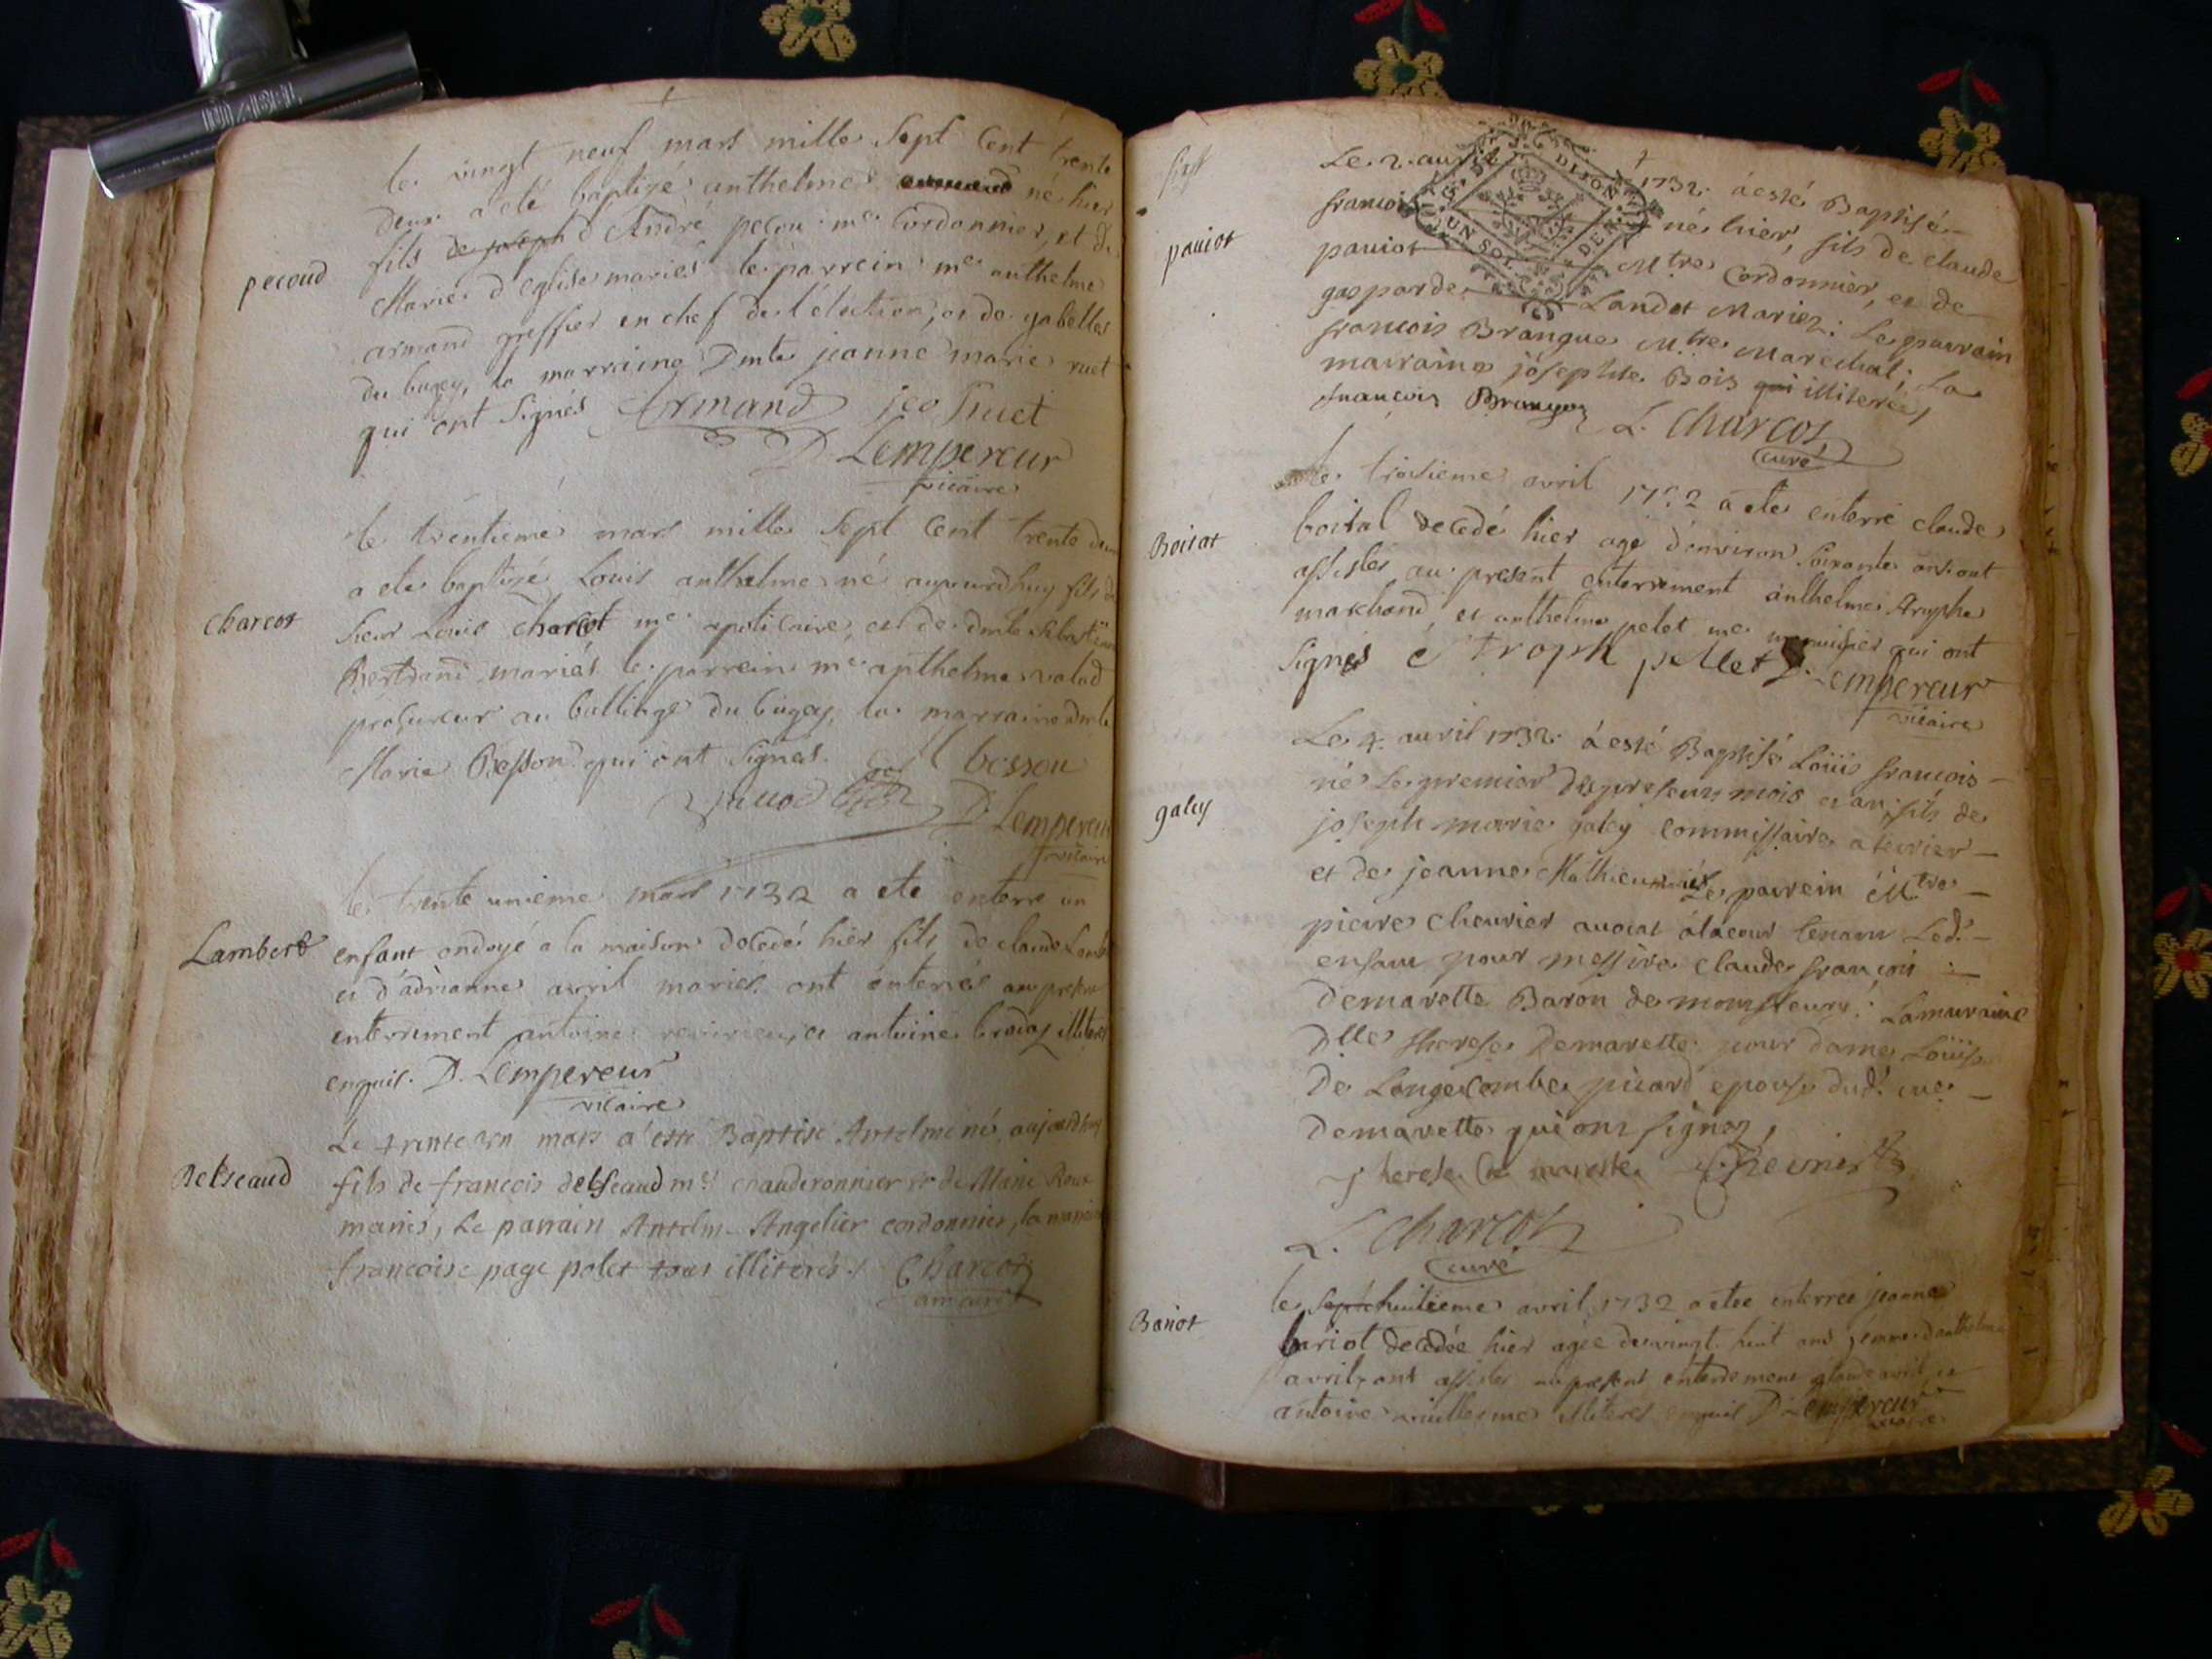 le vingt neuf mars mille Sept Cent trente
deux a été baptizé anthelme né hier
fils de joseph d'André pecou me Cordonnier, et de
pecoud
Marie d'eglise mariés le parrein me anthelme
armand greffier en chef de l'élection, et de gabelles
du bugey, la marraine Dmte jeanne marie ruet
qui ont Signés Armand jeo Ruet
D Lempereur
vicaire
le trentieme mars mille Sept Cent trente deux
a ete baptizé Louis anthelme né aujourdhuy fils de
charcot
Sieur Louis charcot me apoticaire, et de dmte
Bertrand mariés le parrein me anthelme valod
procureur au balliage du bugey, la marraine dmte
Marie Besson qui ont Signés. M besson
D. Lempereur
vicaire
le trente unieme mars 1732 a ete enterré un
Lambert
enfant ondoyé a la maison decedé hier fils de claude Lambert
et d'adrianne avril mariés ont
enterrement antoine et antoine illiteres
enquis. D. Lempereur
vicaire
Le trente un mars a esté Baptisé Antelme né aujourdhuy
Delseaud
fils de françois delseaud me chauderonnier et de Marie Roux
mariés, Le parrain Antelme Angelier cordonnier, la marraine
françoise page polet tous illiterés. Charcot
Le 2. avril 1732. a esté Baptisé
françois né hier, fils de claude
paviot
paviot Mtre Cordonnier, et de
gasparde Landot Mariez: Le parrain
françois Brangue Mtre Marechal; La
marraine josephte Bois qui illiterée,
françois Brangoz L. Charcot
curé
le troisieme avril 1732 a ete enterré claude
Boitat
boital decedé hier agé d'environ soixante ans ont
assistés au present enterrement anthelme
marchand, et anthelme pelet me menuisier qui ont
Signés pellet D. Lempereur
vicaire
Le 4. avril 1732. a esté Baptisé Loüis françois
né Le premier du present mois et an, fils de
galey
joseph marie galey Commissaire a terrier
et de jeanne Mathieu mariés Le parrein Mtre
pierre chevrier avocat a la cour tenant Led.
enfant pour messire claude françois
Demarette Baron de : La marraine
Dlle therese Demarette pour dame Loüise
De Longecombe picard epouse dud. me
Demarette qui ont signez,
Therese de mareste Chevrier
L. Charcot
curé
le sept huitieme avril 1732 a etee enterree jeanne
Bariot
bariot decedée hier agée de vingt huit ans femme d'anthelme
avril, ont assistes au present enterrement claude avril et
antoine illiteres enquis D Lempereur
vicaire
DIJON
UN SOL
DENI